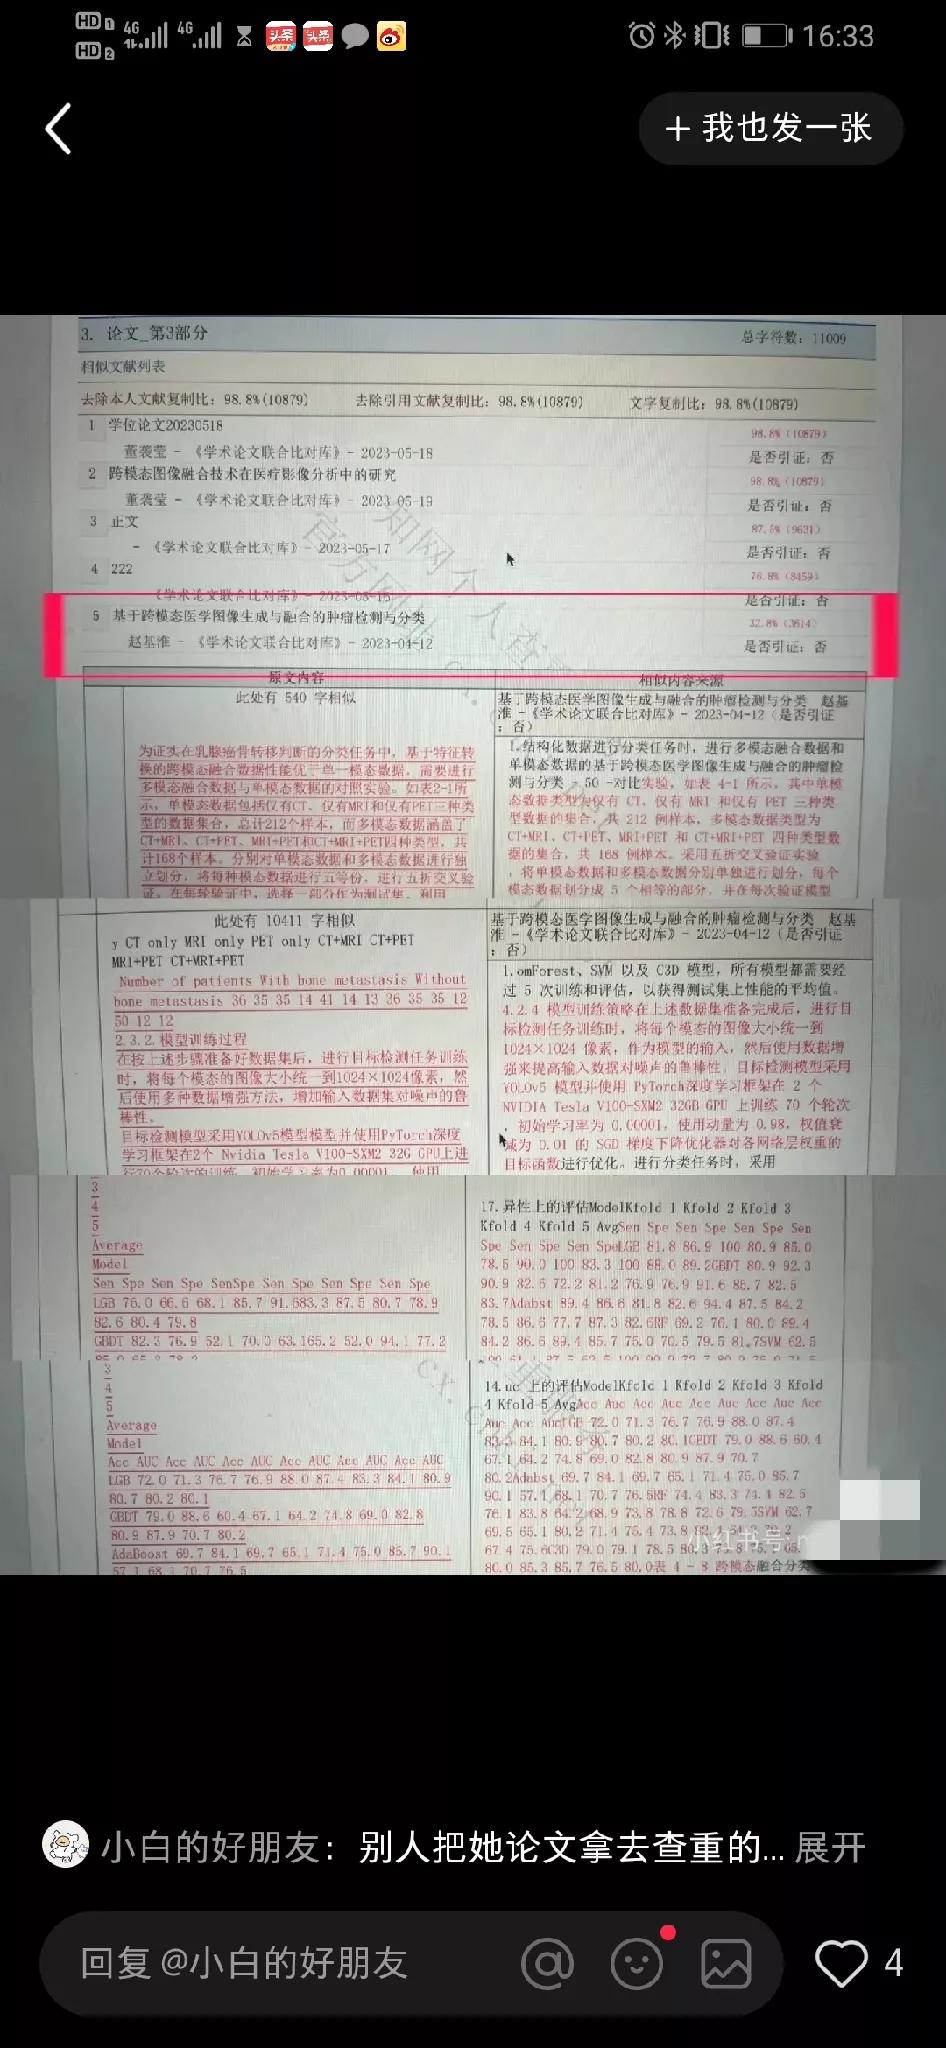 HD 1 4G 4G 头条 头条 16:33
HD 2
+ 我也发一张
3. 论文_第3部分
总字符数：11009
相似文献列表
去除本人文献复制比：98.8%(10879) 去除引用文献复制比：98.8%(10879) 文字复制比：98.8%(10879)
1 学位论文20230518
98.8%(10879)
董袭莹 - 《学术论文联合比对库》- 2023-05-18
是否引证：否
2 跨模态图像融合技术在医疗影像分析中的研究
98.8%(10879)
董袭莹 - 《学术论文联合比对库》- 2023-05-19
是否引证：否
3 正文
87.5%(9631)
- 《学术论文联合比对库》- 2023-05-17
是否引证：否
4 222
76.8%(8459)
《学术论文联合比对库》- 2023-05-16
是否引证：否
5 基于跨模态医学图像生成与融合的肿瘤检测与分类
32.8%(3614)
赵基淮 - 《学术论文联合比对库》- 2023-04-12
是否引证：否
原文内容
相似内容来源
此处有 540 字相似
为证实在乳腺癌骨转移判断的分类任务中，基于特征转
换的跨模态融合数据性能优于单一模态数据，需要进行
多模态融合数据与单模态数据的对照实验。如表2-1所
示，单模态数据包括仅有CT、仅有MRI和仅有PET三种类
型的数据集合，总计212个样本，而多模态数据涵盖了
CT+MRI、CT+PET、MRI+PET和CT+MRI+PET四种类型，共
计168个样本。分别对单模态数据和多模态数据进行独
立划分，将每种模态数据进行五等份，进行五折交叉验
证。在每轮验证中，选择一部分作为测试集，利用
基于跨模态医学图像生成与融合的肿瘤检测与分类 赵基
淮 -《学术论文联合比对库》- 2023-04-12（是否引证
：否）
1.结构化数据进行分类任务时，进行多模态融合数据和
单模态数据的基于跨模态医学图像生成与融合的肿瘤检
测与分类 - 50 -对比实验，如表 4-1 所示，其中单模
态数据类型为仅有 CT、仅有 MRI 和仅有 PET 三种类
型数据的集合，共 212 例样本，多模态数据类型为
CT+MRI、CT+PET、MRI+PET 和 CT+MRI+PET 四种类型数
据的集合，共 168 例样本。采用五折交叉验证实验
，将单模态数据和多模态数据分别单独进行划分，每个
模态数据划分成 5 个相等的部分，并在每次验证模型
此处有 10411 字相似
y CT only MRI only PET only CT+MRI CT+PET
MRI+PET CT+MRI+PET
Number of patients With bone metastasis Without
bone metastasis 36 35 35 14 41 14 13 36 35 35 12
50 12 12
2.3.2.模型训练过程
在按上述步骤准备好数据集后，进行目标检测任务训练
时，将每个模态的图像大小统一到1024×1024像素，然
后使用多种数据增强方法，增加输入数据集对噪声的鲁
棒性。
目标检测模型采用YOLOv5模型模型并使用PyTorch深度
学习框架在2个 Nvidia Tesla V100-SXM2 32G GPU上进
行70个轮次的训练，初始学习率为0.00001，使用
基于跨模态医学图像生成与融合的肿瘤检测与分类 赵基
淮 -《学术论文联合比对库》- 2023-04-12（是否引证
：否）
1.omForest、SVM 以及 C3D 模型，所有模型都需要经
过 5 次训练和评估，以获得测试集上性能的平均值。
4.2.4 模型训练策略在上述数据集准备完成后，进行目
标检测任务训练时，将每个模态的图像大小统一到
1024×1024 像素，作为模型的输入，然后使用数据增
强来提高输入数据对噪声的鲁棒性。目标检测模型采用
YOLOv5 模型并使用 PyTorch深度学习框架在 2 个
NVIDIA Tesla V100-SXM2 32GB GPU 上训练 70 个轮次
，初始学习率为 0.00001，使用动量为 0.98，权值衰
减为 0.01 的 SGD 梯度下降优化器对各网络层权重的
目标函数进行优化。进行分类任务时，采用
3
4
5
Average
Model
Sen Spe Sen Spe SenSpe Sen Spe Sen Spe Sen Spe
LGB 75.0 66.6 68.1 85.7 91.683.3 87.5 80.7 78.9
82.6 80.4 79.8
GBDT 82.3 76.9 52.1 70.0 63.165.2 52.0 94.1 77.2
17.异性上的评估ModelKfold 1 Kfold 2 Kfold 3
Kfold 4 Kfold 5 AvgSen Spe Sen Spe Sen Spe Sen
Spe Sen Spe Sen SpeLGB 81.8 86.9 100 80.9 85.0
78.5 90.0 100 83.3 100 88.0 89.2GBDT 80.9 92.3
90.9 82.6 72.2 81.2 76.9 76.9 91.6 85.7 82.5
83.7Adabst 89.4 86.6 81.8 82.6 94.4 87.5 84.2
78.5 86.6 77.7 87.3 82.6RF 69.2 76.1 80.0 89.4
84.2 86.6 89.4 85.7 75.0 70.5 79.5 81.7SVM 62.5
3
4
5
Average
Model
Acc AUC Acc AUC Acc AUC Acc AUC Acc AUC Acc AUC
LGB 72.0 71.3 76.7 76.9 88.0 87.4 83.3 84.1 80.9
80.7 80.2 80.1
GBDT 79.0 88.6 60.4 67.1 64.2 74.8 69.0 82.8
80.9 87.9 70.7 80.2
AdaBoost 69.7 84.1 69.7 65.1 71.4 75.0 85.7 90.1
57.1 68.1 70.7 76.5
14.uc 上的评估ModelKfold 1 Kfold 2 Kfold 3 Kfold
4 Kfold 5 AvgAcc Auc Acc Auc Acc Auc Acc
Auc Acc AucLGB 72.0 71.3 76.7 76.9 88.0 87.4
83.3 84.1 80.9 80.7 80.2 80.1GBDT 79.0 88.6 60.4
67.1 64.2 74.8 69.0 82.8 80.9 87.9 70.7
80.2Adabst 69.7 84.1 69.7 65.1 71.4 75.0 85.7
90.1 57.1 68.1 70.7 76.5RF 74.4 83.3 74.1 82.5
76.1 83.8 64.2 68.9 73.8 78.8 72.6 79.5SVM 62.7
69.5 65.1 80.2 71.4 75.4 73.8
67.4 75.6C3D 79.0 79.1 78.5 80.3
80.0 85.3 85.7 76.5 80.0表 4 - 8 跨模态融合分类
小红书号
小白的好朋友：别人把她论文拿去查重的... 展开
回复 @小白的好朋友
4